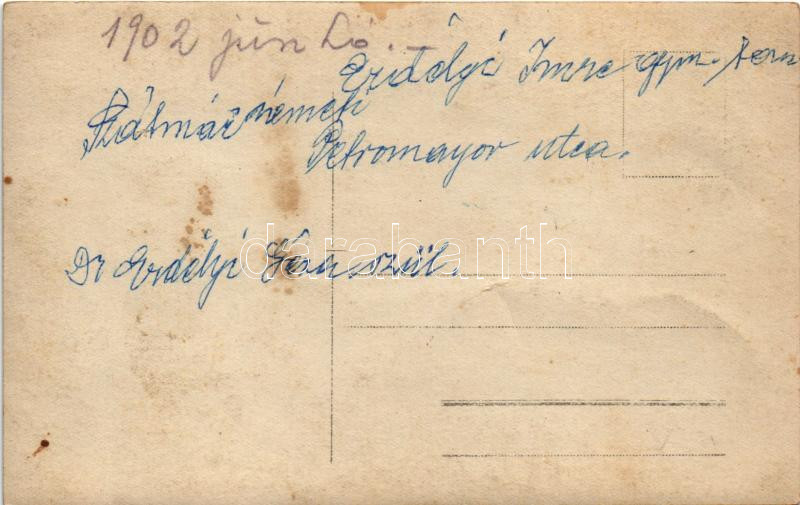 1902 jún hó. –
Erdélyi Imre gym.
Szatmár németi
Petromayor utca.
Dr Erdélyi szül.
darabanth.com